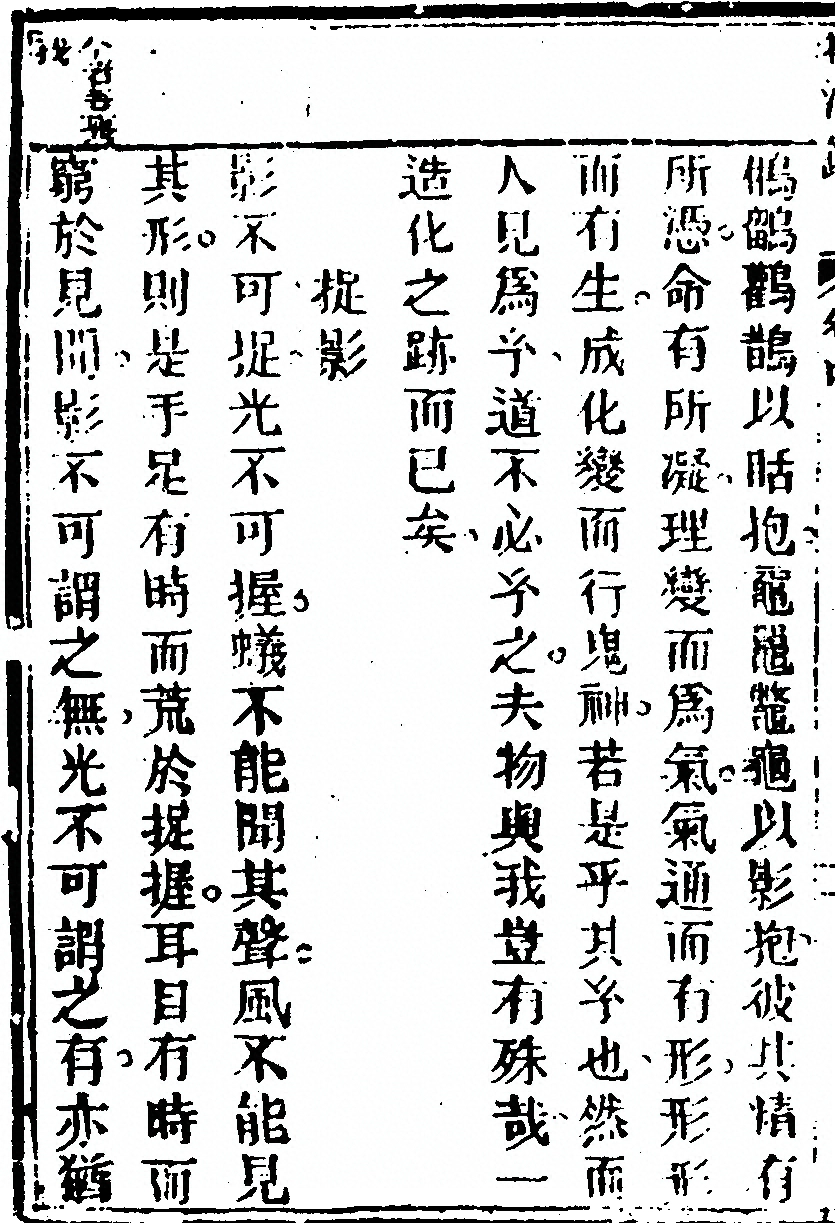 鴝鵒鸛鵲以聒抱黿鼉鼈龜以影抱彼其情有
所憑命有所凝理變而爲氣氣通而有形形形
而有生成化變而行鬼神若是乎其孚也然而
人見爲孚道不必孚之夫物與我豈有殊哉一
造化之跡而已矣
捉影
影不可捉光不可握蟻不能聞其聲風不能見
其形則是手足有時而荒於捉握耳目有時而
窮於見聞影不可謂之無光不可謂之有亦猶